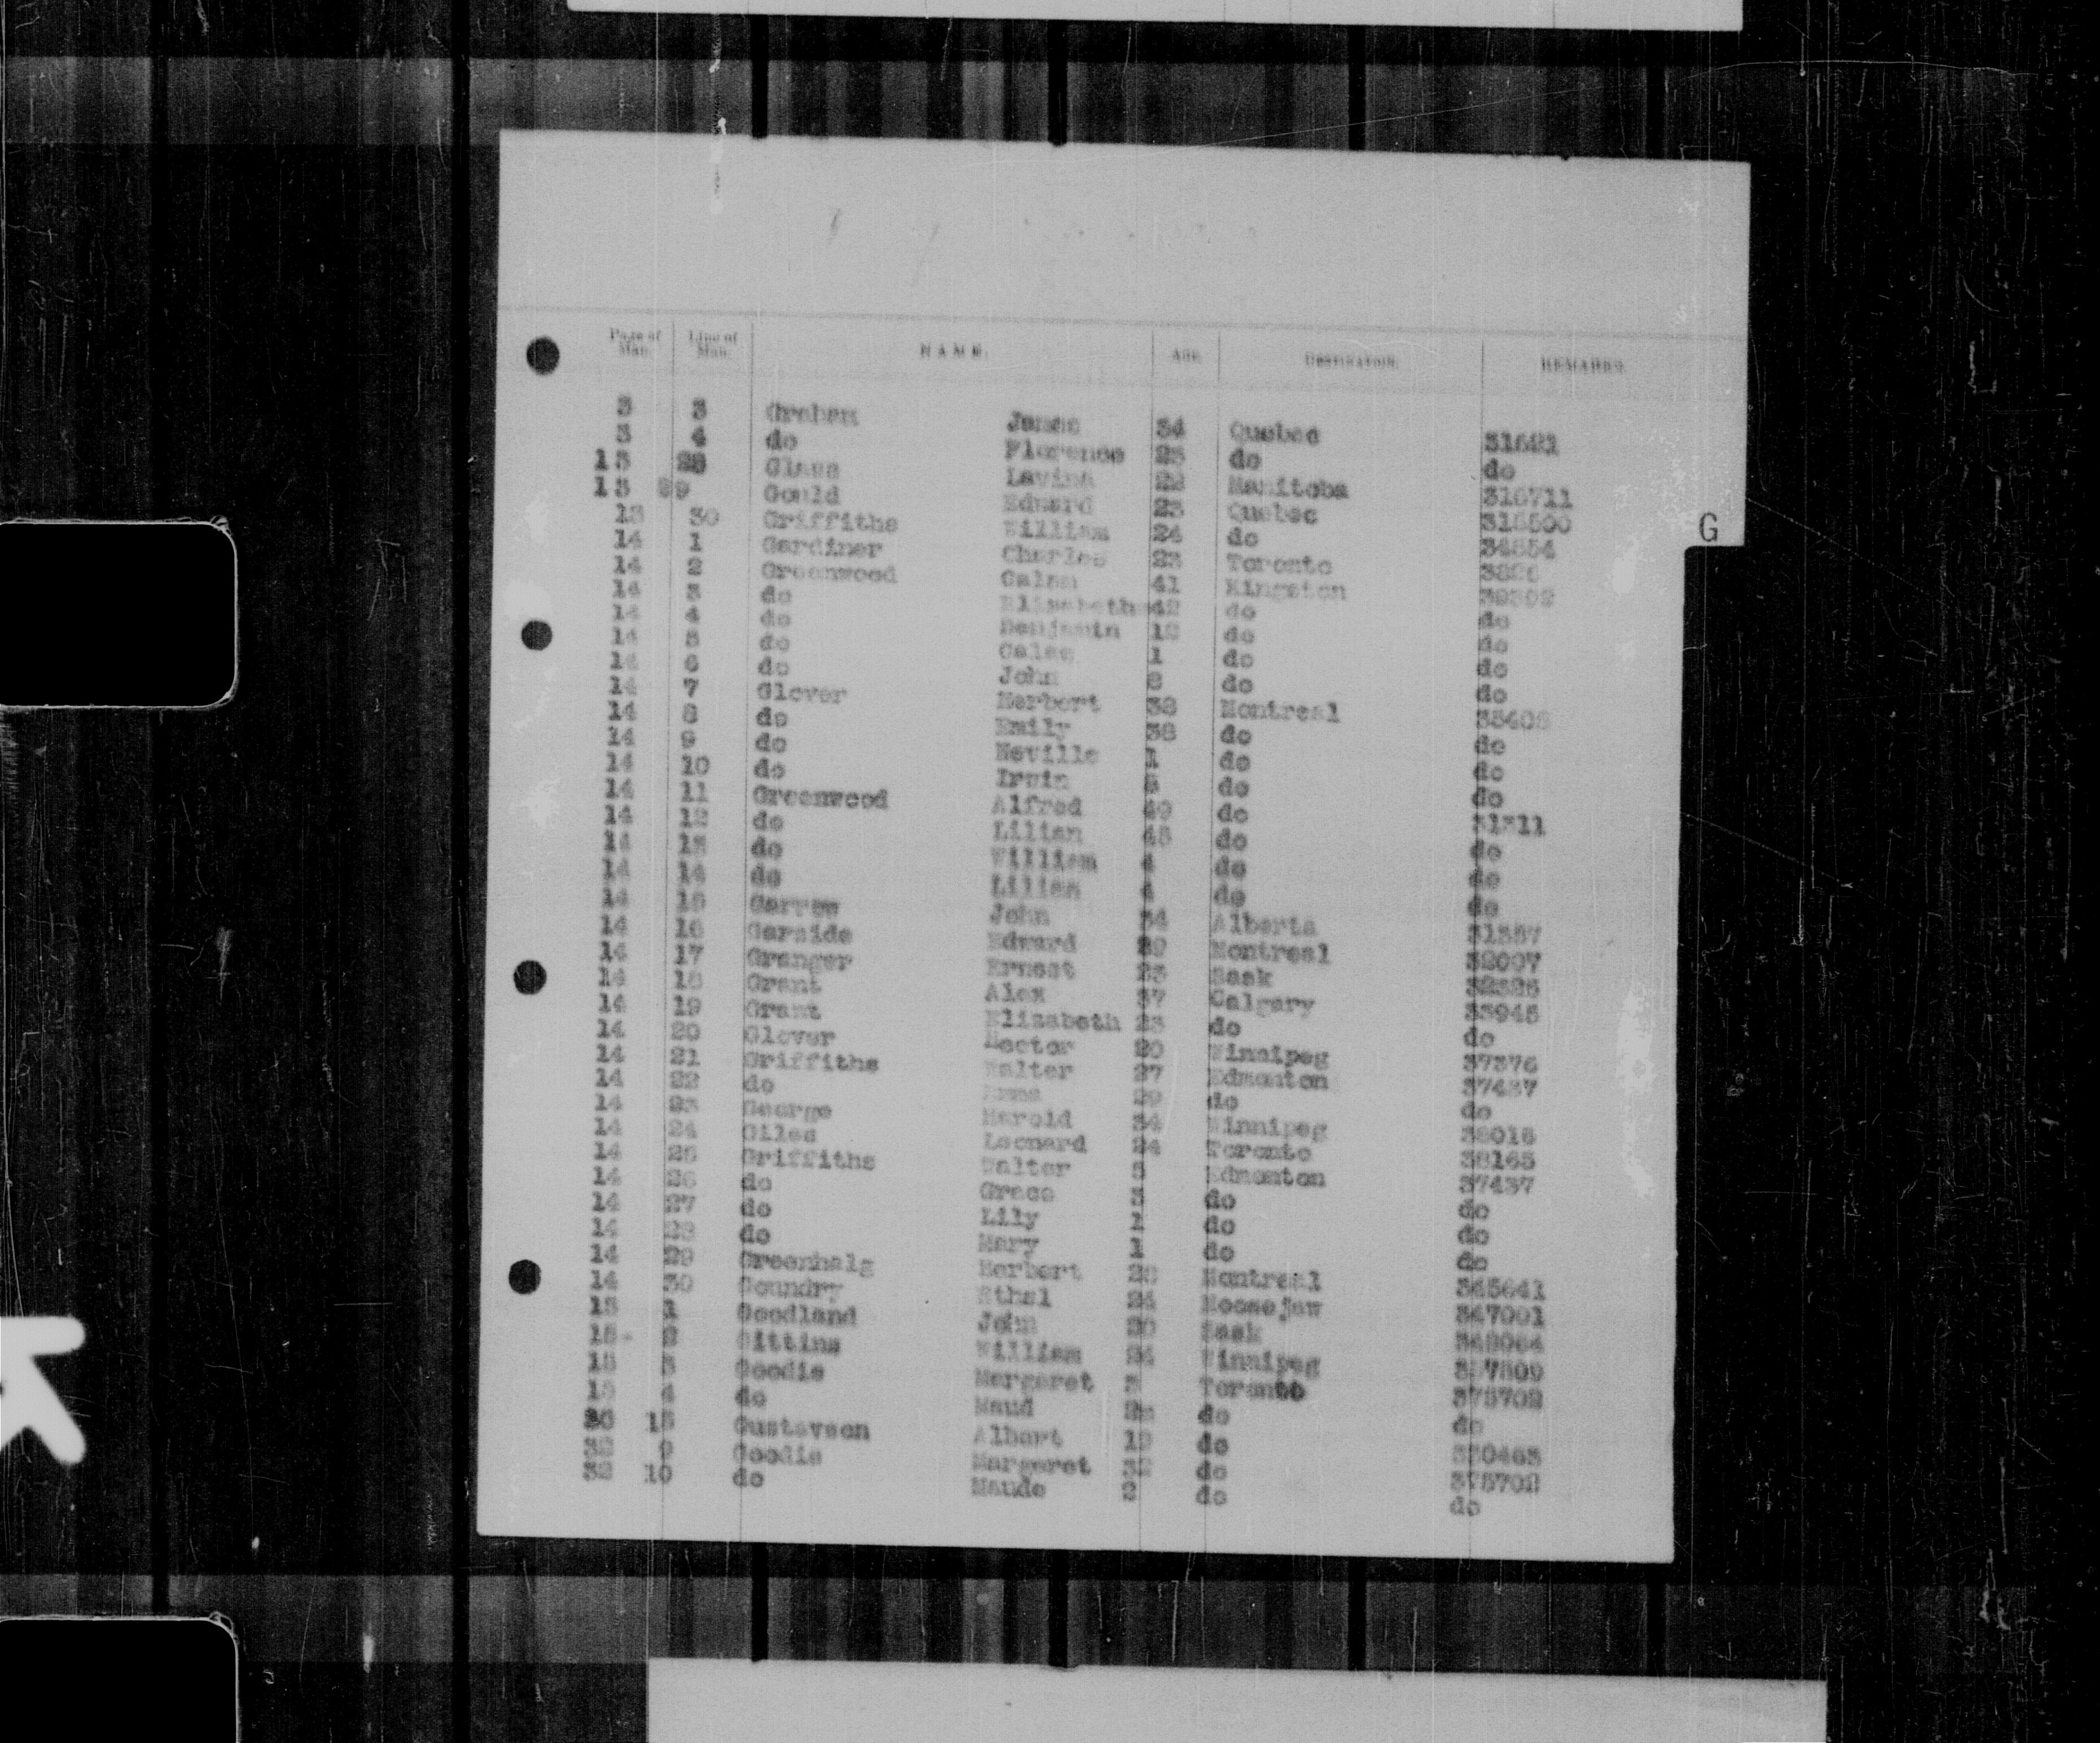 Page of Man. Line of Man. NAME. Age. Destination. REMARKS.
3 3 Graham James 34 Quebec 31621
3 4 do Florence 25 do do
13 28 Glass Lavina 22 Manitoba 316711
13 29 Gould Edward 23 Quebec 315500
13 30 Griffiths William 24 do 34854
G
14 1 Gardiner Charles 23 Toronto
14 2 Greenwood 41 Kingston
14 3 do Elizabeth 42 do do
14 4 do Benjamin do do
14 5 do 1 do do
14 6 do John do do
14 7 Glover Herbert 38 Montreal
14 8 do Emily 38 do do
14 9 do Neville 1 do do
14 10 do Irwin 5 do do
14 11 Greenwood Alfred 49 do 31311
14 12 do Lilian 45 do do
14 13 do William 4 do do
14 14 do Lilian 4 do do
14 15 John 34 Alberta 31357
14 16 Garside Edward 29 Montreal 32007
14 17 Granger Ernest 23 Sask
14 18 Grant Alex 37 Calgary 33945
14 19 Grant Elizabeth 23 do do
14 20 Glover Hector 20 Winnipeg 37376
14 21 Griffiths Walter 27 Edmonton 37437
14 22 do 29 do do
14 23 George Harold 34 Winnipeg 38016
14 24 Giles Leonard 24 Toronto 38165
14 25 Griffiths Walter 5 Edmonton 37437
14 26 do Grace 3 do do
14 27 do Lily 1 do do
14 28 do Mary 1 do do
14 29 Greenhalg Herbert Montreal 345641
14 30 Goundry Ethel 24 Moosejaw 347001
15 1 Goodland John 20 Sask
15 2 Gittins William 24 Winnipeg 357509
15 3 Goodie Margaret 3 Toronto 375702
15 4 do Maud do do
30 15 Gustavson Albert 19 do 330463
32 9 Goodie Margaret 32 do 375702
32 10 do Maude 2 do do